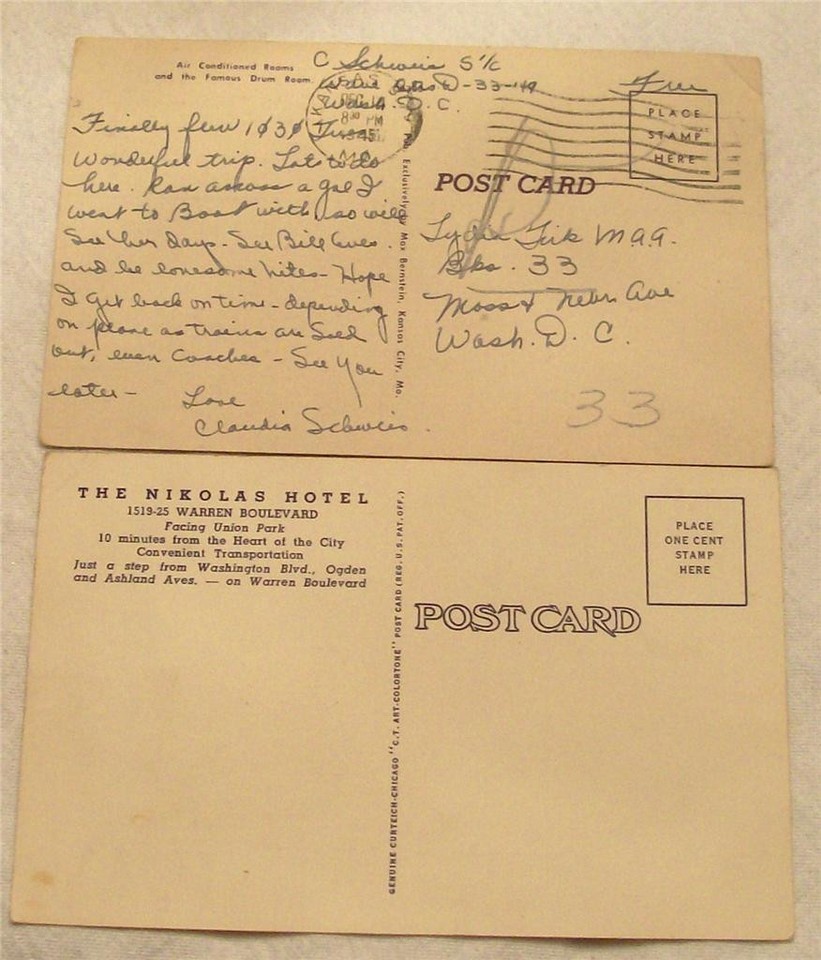 Air Conditioned Rooms
and the Famous Drum Room
C Schweis S 1/c
D-33-149
Wash. D. C.
Free
8 30 PM
1945
MO.
PLACE
STAMP
HERE
POST CARD
Finally flew
Wonderful trip. Lots to do
here. Ran across a gal I
went to Boot with, so will
See her days. See Bill eves.
and be lonesome nites - Hope
I get back on time - depending
on plane as trains are Sold
out, even Coaches - See You
later -
Love
Claudia Schweis.
Exclusively by Max Bernstein, Kansas City, Mo.
Lydia
Bks. 33
Mass & Nebr Ave
Wash. D. C.
33
THE NIKOLAS HOTEL
1519-25 WARREN BOULEVARD
Facing Union Park
10 minutes from the Heart of the City
Convenient Transportation
Just a step from Washington Blvd., Ogden
and Ashland Aves. — on Warren Boulevard
GENUINE CURTEICH-CHICAGO "C.T. ART-COLORTONE" POST CARD (REG. U.S. PAT. OFF.)
PLACE
ONE CENT
STAMP
HERE
POST CARD